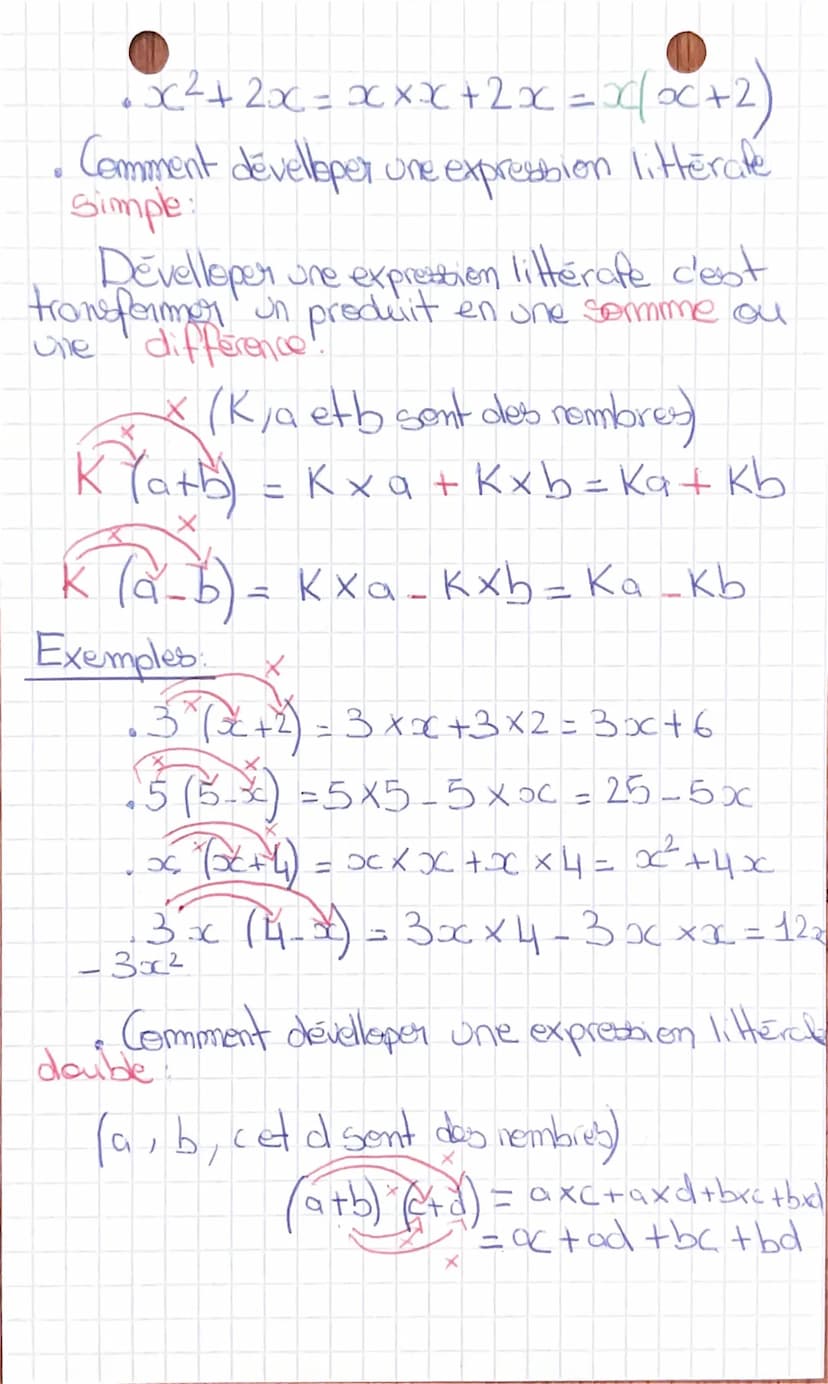 . x² + 2x = x × x + 2 x = x(x+2)
. Comment développer une expression littérale
simple :
Développer une expression littérale c'est
transformer un produit en une somme ou
une différence.
(K, a et b sont des nombres)
K (a+b) = K × a + K × b = Ka + Kb
K (a - b) = K × a - K × b = Ka - Kb
Exemples :
. 3 (x+2) = 3 × x + 3 × 2 = 3x + 6
. 5 (5 - x) = 5 × 5 - 5 × x = 25 - 5x
. x (x+4) = x × x + x × 4 = x² + 4x
. 3x (4 - x) = 3x × 4 - 3x × x = 12x
- 3x²
. Comment développer une expression littérale
double :
(a, b, c et d sont des nombres)
(a+b) (c+d) = a×c + a×d + b×c + b×d
= ac + ad + bc + bd